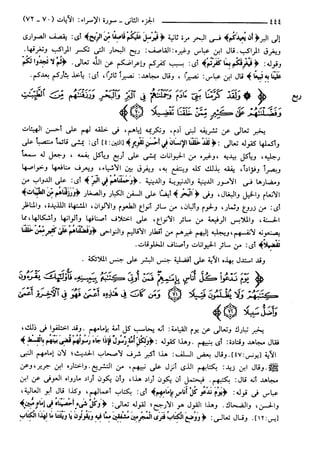 ٤٤٤ الجزء الثاني - سورة الإسراء: الآيات (٧٠ - ٧٢)
إلى البر ﴿أن يعيدكم﴾ في البحر مرة ثانية ﴿فيرسل عليكم قاصفا من الريح﴾ أي: يقصف الصواري
ويغرق المراكب. قال ابن عباس وغيره: القاصف: ريح البحار التي تكسر المراكب وتغرقها.
وقوله: ﴿فيغرقكم بما كفرتم﴾ أي: بسبب كفركم وإعراضكم عن الله تعالى. ﴿ثم لا تجدوا لكم
علينا به تبيعا﴾ قال ابن عباس: نصيراً، وقال مجاهد: نصيراً ثائراً، أي: يأخذ بثأركم بعدكم.
ربع
﴿ولقد كرمنا بني آدم وحملناهم في البر والبحر ورزقناهم من الطيبات
وفضلناهم على كثير ممن خلقنا تفضيلا﴾
يخبر تعالى عن تشريفه لبني آدم، وتكريمه إياهم، في خلقه لهم على أحسن الهيئات
وأكملها كقوله تعالى: ﴿لقد خلقنا الإنسان في أحسن تقويم﴾ [التين: ٤] أي: يمشي قائماً منتصباً على
رجليه، ويأكل بيديه، وغيره من الحيوانات يمشي على أربع ويأكل بفمه، وجعل له سمعاً
وبصراً وفؤاداً، يفقه بذلك كله وينتفع به، ويفرق بين الأشياء، ويعرف منافعها وخواصها
ومضارها في الأمور الدينية والدنيوية. ﴿وحملناهم في البر﴾ أي: على الدواب من
الأنعام والخيل والبغال، وفي ﴿البحر﴾ أيضاً على السفن الكبار والصغار ﴿ورزقناهم من الطيبات﴾
أي: من زروع وثمار، ولحوم وألبان، من سائر أنواع الطعوم والألوان، المشتهاة اللذيذة، والمناظر
الحسنة، والملابس الرفيعة من سائر الأنواع، على اختلاف أصنافها وألوانها وأشكالها، مما
يصنعونه لأنفسهم، ويجلبه إليهم غيرهم من أقطار الأقاليم والنواحي ﴿وفضلناهم على كثير ممن خلقنا
تفضيلا﴾ أي: من سائر الحيوانات وأصناف المخلوقات.
وقد استدل بهذه الآية على أفضلية جنس البشر على جنس الملائكة.
﴿يوم ندعوا كل أناس بإمامهم فمن أوتي كتابه بيمينه فأولئك يقرءون كتابهم ولا
يظلمون فتيلا ومن كان في هذه أعمى فهو في الآخرة أعمى
وأضل سبيلا﴾
يخبر تبارك وتعالى عن يوم القيامة: أنه يحاسب كل أمة بإمامهم. وقد اختلفوا في ذلك،
فقال مجاهد وقتادة: أي بنبيهم. وهذا كقوله: ﴿ولكل أمة رسول فإذا جاء رسولهم قضي بينهم بالقسط﴾
الآية [يونس: ٤٧]. وقال بعض السلف: هذا أكبر شرف لأصحاب الحديث؛ لأن إمامهم النبي
ﷺ. وقال ابن زيد: بكتابهم الذي أنزل على نبيهم، من التشريع. واختاره ابن جرير، وعن
مجاهد أنه قال: بكتبهم. فيحتمل أن يكون أراد هذا، وأن يكون أراد مارواه العوفي عن ابن
عباس في قوله: ﴿يوم ندعوا كل أناس بإمامهم﴾ أي: بكتاب أعمالهم، وكذا قال أبو العالية،
والحسن، والضحاك. وهذا القول هو الأرجح؛ لقوله تعالى: ﴿وكل شيء أحصيناه في إمام مبين﴾
[يس: ١٢]. وقال تعالى: ﴿ووضع الكتاب فترى المجرمين مشفقين مما فيه ويقولون يا ويلتنا مال هذا الكتاب